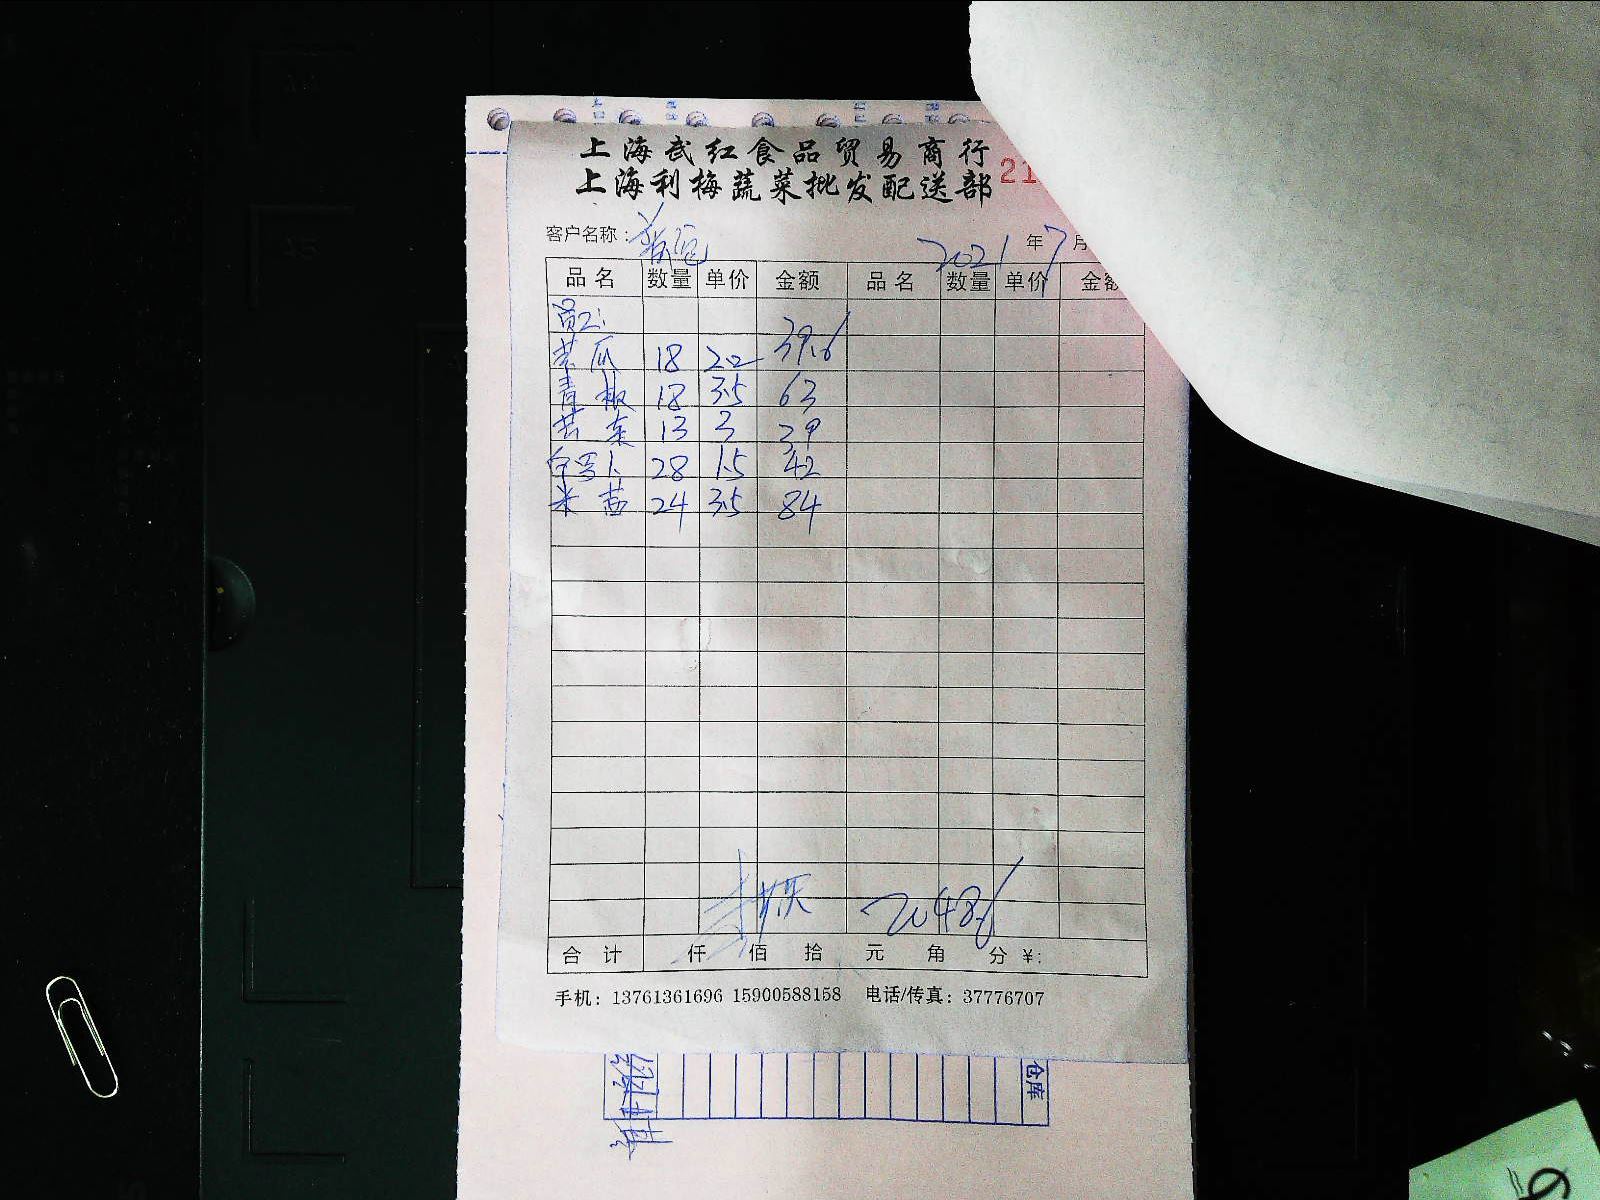 上海武红食品贸易商行
上海利梅蔬菜批发配送部
21
客户名称： 2021 年 7 月
品名 数量 单价 金额 品名 数量 单价 金额
员工:
苦瓜 18 2.2 39.6
青椒 18 3.5 63
苦菜 13 3 39
白罗卜 28 1.5 42
米苋 24 3.5 84
2048.6
合计 仟 佰 拾 元 角 分 ¥:
手机: 13761361696 15900588158 电话/传真: 37776707
仓库